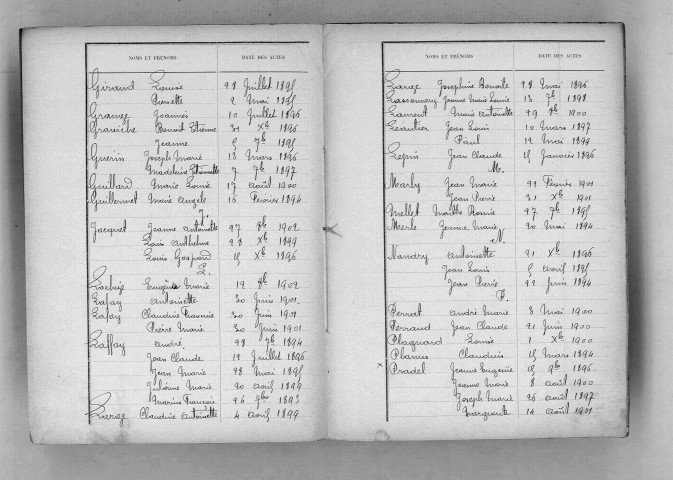 NOMS ET PRÉNOMS DATE DES ACTES
Giraud Louise 28 Juillet 1895
Pierrette 2 Mai 1895
Grange Joannès 10 Juillet 1896
Benoit Etienne 31 Xb 1896
Jeanne 5 7b 1895
Guerin Joseph Marie 13 Mars 1896
Madeleine 7 7b 1897
Guillard Marie Louise 17 Août 1900
Guillermet Marie Angèle 16 Février 1894
J.
Jacquet Jeanne Antoinette 27 8b 1902
Louis Anthelme 28 Xb 1899
Louis Gaspard 15 Xb 1896
L.
Eugénie Marie 12 8b 1902
Lafay Antoinette 30 Juin 1901
Lafay Claudine Francine 30 Juin 1901
Pierre Marie 30 Juin 1901
Laffay André 28 7b 1894
Jean Claude 12 Juillet 1896
Jean Marie 28 Mai 1895
Julienne Marie 20 Avril 1899
Marius François 26 9b 1893
Large Claudine Antoinette 4 Avril 1899
NOMS ET PRÉNOMS DATE DES ACTES
Large Joséphine Benoite 28 Mai 1896
Jeanne Marie Louise 13 7b 1898
Laurent Marie Antoinette 29 9b 1900
Léautier Jean Louis 10 Mars 1897
Paul 12 Mai 1899
Lépin Jean Claude 15 Janvier 1896
M.
Marly Jean Marie 22 Février 1901
Jean Pierre 31 Xb 1901
Mellet Marthe 27 7b 1895
Merle Jeanne Marie 20 Mai 1894
N.
Nandry Antoinette 21 Xb 1896
Jean Louis 5 Avril 1895
Jean Pierre 22 Juin 1894
P.
Perrat André Marie 8 Mai 1900
Perraud Jean Claude 21 Juin 1900
Plagnard Louise 1 Xb 1900
Planus Claudius 15 Mars 1894
x Pradel Jeanne Eugénie 15 9b 1896
Jeanne Marie 8 Août 1900
Joseph Marie 26 Août 1897
Marguerite 14 Août 1901